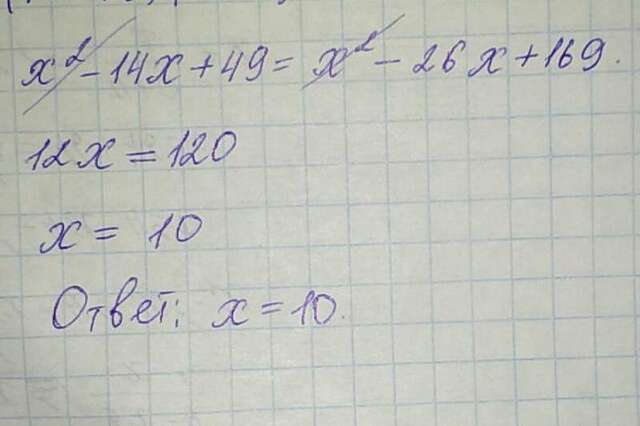 x² - 14x + 49 = x² - 26x + 169.
12x = 120
x = 10
Ответ: x = 10.